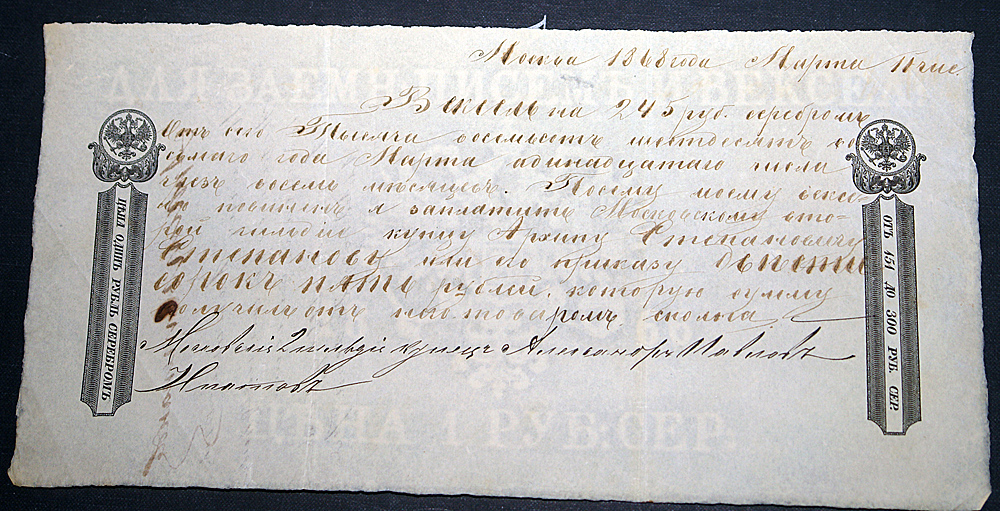 Москва 1868 года Марта 11 чис.
Вексель на 245 руб. серебромъ
Отъ сего Тысяча восемьсотъ шестдесятъ во-
сьмаго года Марта одинадцатаго числа
чрезъ восемь мѣсяцовъ. По сему моему вексе-
лю повиненъ я заплатить Московскому вто-
рой гильдіи купцу Архипу Степановичу
Степанову или его приказу двѣсти
сорокъ пять рублей, которую сумму
получилъ отъ него товаромъ сполна.
Московскій 2 гильдіи купецъ Александръ Павловъ
ЦѢНА ОДИНЪ РУБЛЬ СЕРЕБРОМЪ
ОТЪ 151 ДО 300 РУБ. СЕР.
ДЛЯ ЗАЕМН ПИСЕМЪ И ВЕКСЕЛ
ЦѢНА 1 РУБ СЕР